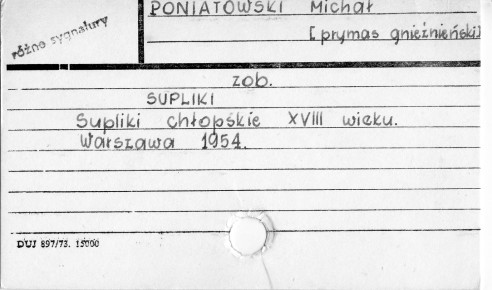 różne sygnatury
PONIATOWSKI Michał
[prymas gnieźnieński]
zob.
SUPLIKI
Supliki chłopskie XVIII wieku.
Warszawa 1954.
DUJ 897/73. 15000